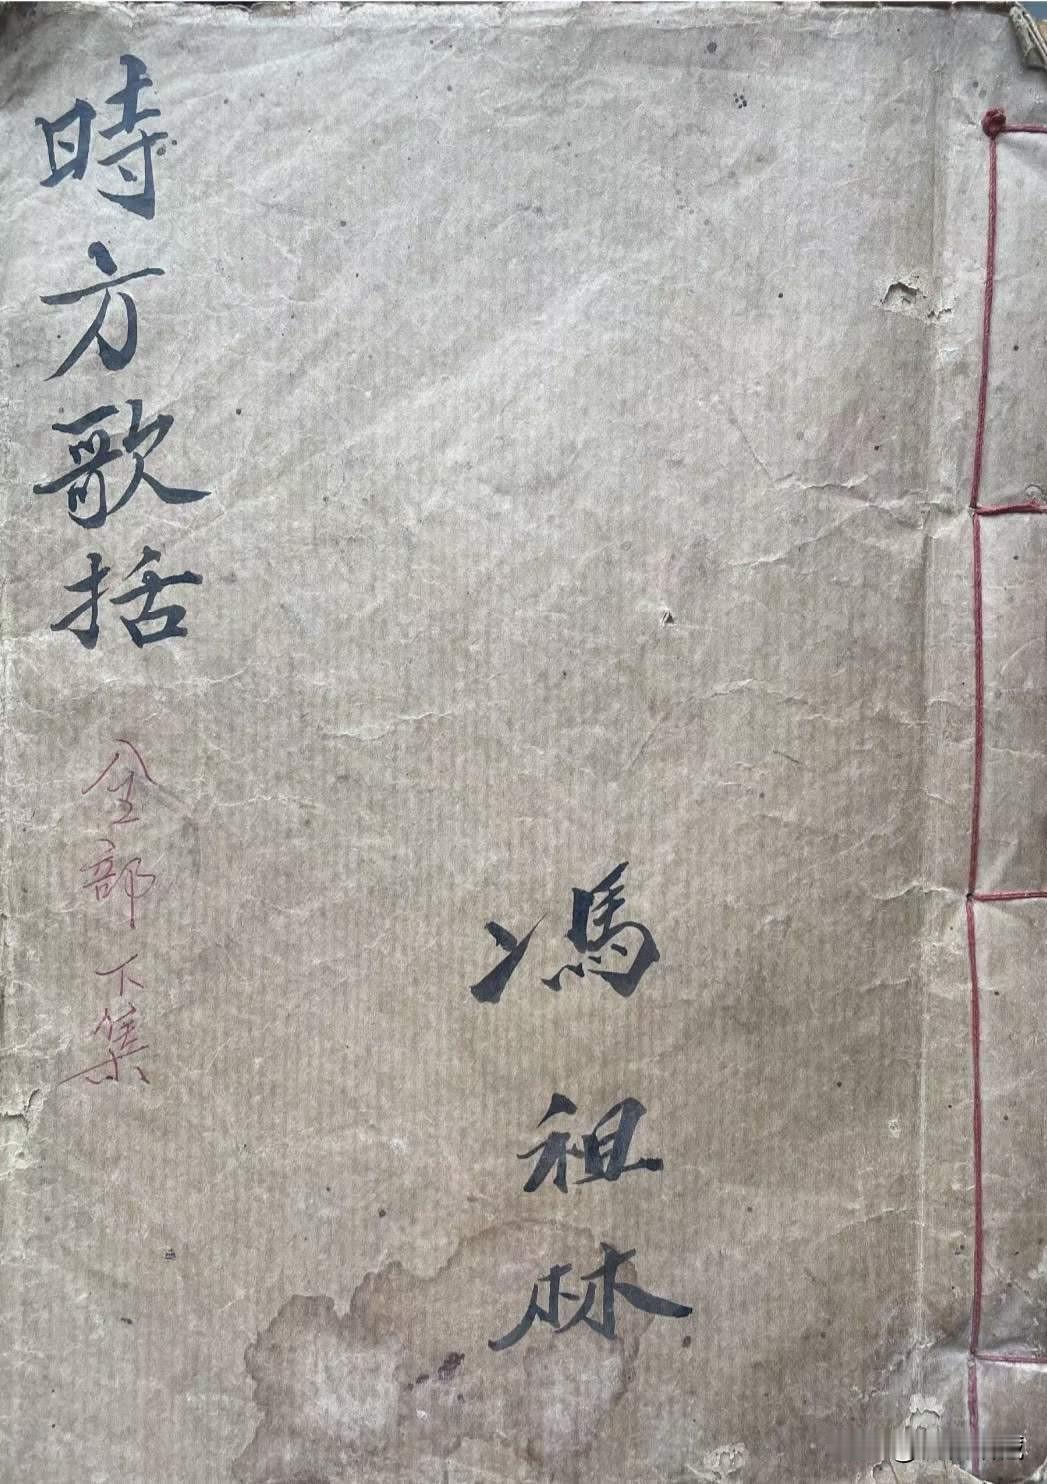 時方歌括
全部下集
馮祖林